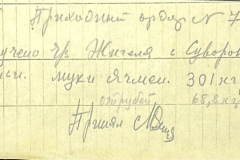 Приходный ордер № 7
учено гр. Жителя с Суворов
муки ячмен. 301 кг
отрубей 68,8 кг
Принял